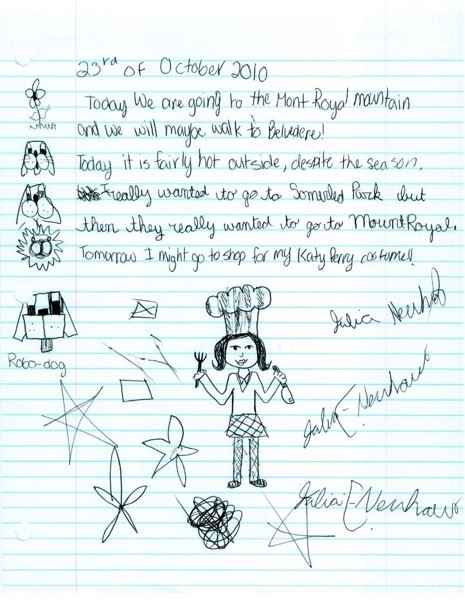 23rd of October 2010
Today We are going to the Mont Royal mountain
and we will maybe walk to Belvdere!
Today it is fairly hot outside, despite the season.
I really wanted to go to Somerled Park but
then they really wanted to go to Mount Royal.
Tomorrow I might go to shop for my Katy Perry costume!!
Julia
Robo-dog
Julia E. Neuhaus
Julia E Neuhaus